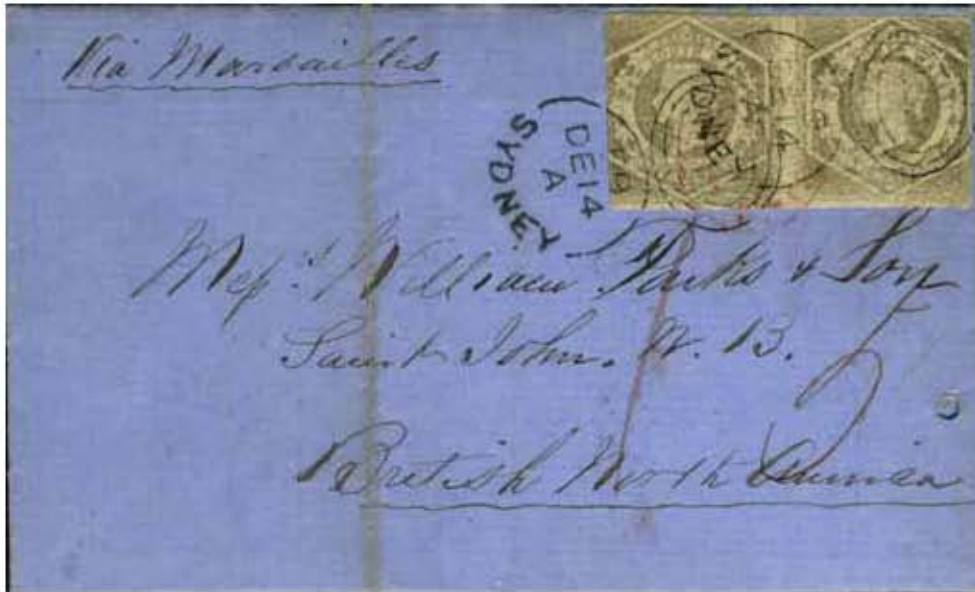 Via Marsaillis
SYDNEY
DE 14
A
SYDNEY
14
Mess.rs William Parks & Son
Saint John. N. B.
British North America